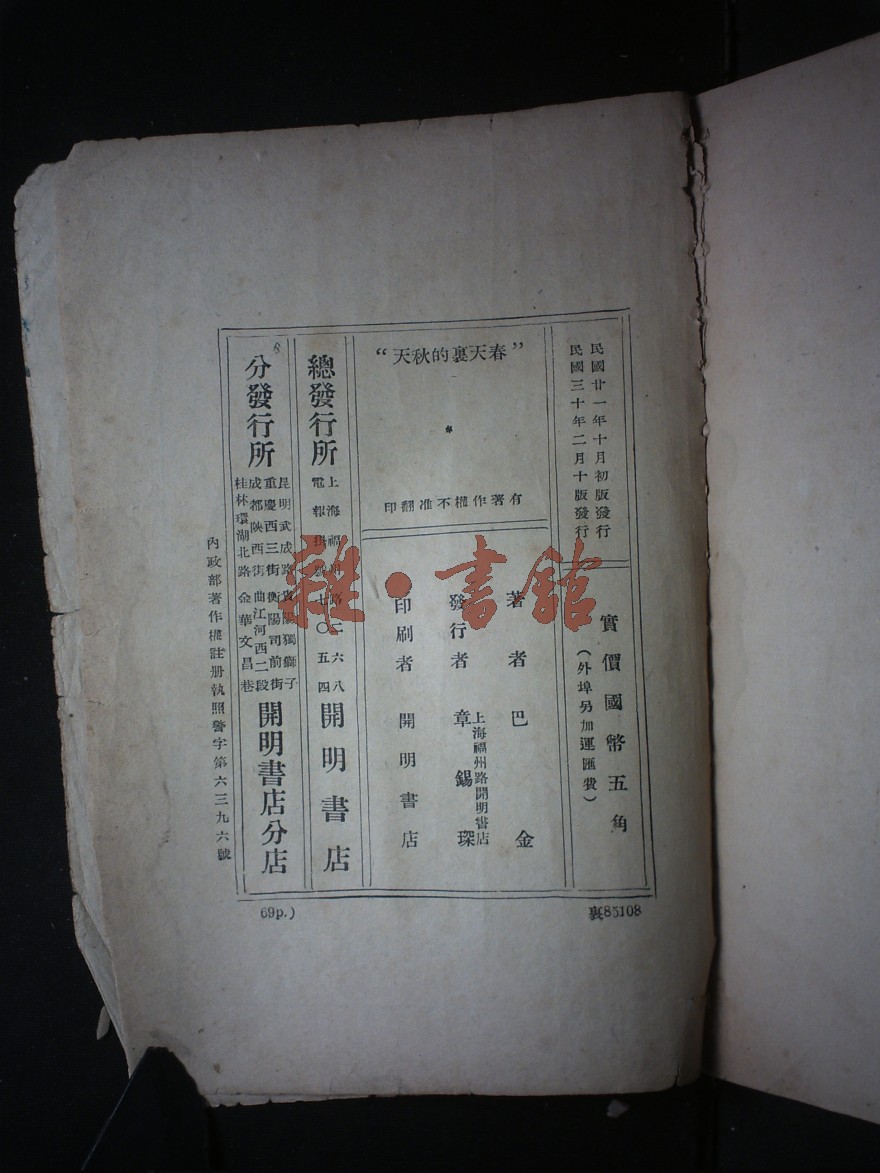 民國廿一年十月初版發行
民國三十年二月十版發行
實價國幣五角
(外埠另加運匯費)
”春天裏的秋天“
有著作權不准翻印
著者 巴金
發行者 章錫琛
上海福州路開明書店
印刷者 開明書店
總發行所
上海福州路二六八
電報掛號七〇五四
開明書店
分發行所
昆明武成路 貴陽獨獅子
重慶西三街 衡陽司前街
成都陝西街 曲江河西二段
桂林環湖北路 金華文昌巷
開明書店分店
內政部著作權註册執照警字第六三九六號
69p.)
裏85108
雜·書館